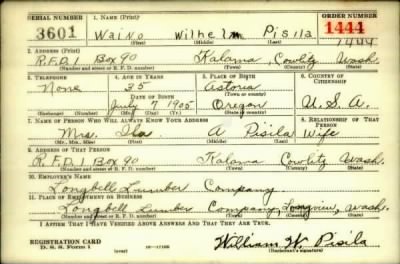 SERIAL NUMBER 1. NAME (Print) ORDER NUMBER
3601 Waino Wilhelm Pisila 1444
(First) (Middle) (Last) 1444
2. ADDRESS (Print)
R.F.D. 1 Box 90 Kalama, Cowlitz Wash.
(Number and street or R. F. D. number) (Town) (County) (State)
3. TELEPHONE 4. AGE IN YEARS 5. PLACE OF BIRTH 6. COUNTRY OF CITIZENSHIP
None 35 Astoria
DATE OF BIRTH (Town or county)
July 7 1905 Oregon U.S.A.
(Exchange) (Number) (Mo.) (Day) (Yr.) (State or country)
7. NAME OF PERSON WHO WILL ALWAYS KNOW YOUR ADDRESS 8. RELATIONSHIP OF THAT PERSON
Mrs. Ila A Pisila Wife
(Mr., Mrs., Miss) (First) (Middle) (Last)
9. ADDRESS OF THAT PERSON
R.F.D. 1 Box 90 Kalama Cowlitz Wash.
(Number and street or R. F. D. number) (Town) (County) (State)
10. EMPLOYER'S NAME
Longbell Lumber Company
11. PLACE OF EMPLOYMENT OR BUSINESS
Longbell Lumber Company, Longview, Wash.
(Number and street or R. F. D. number) (Town) (County) (State)
I AFFIRM THAT I HAVE VERIFIED ABOVE ANSWERS AND THAT THEY ARE TRUE.
REGISTRATION CARD
D. S. S. Form 1 William W. Pisila
(Registrant's signature)